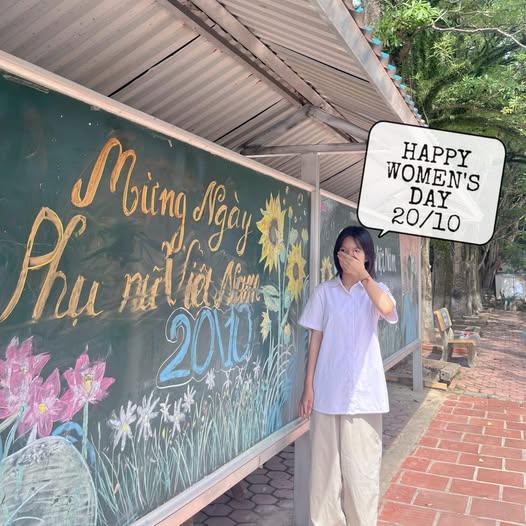 Mừng Ngày
Phụ nữ Việt Nam
20/10
HAPPY
WOMEN'S
DAY
20/10
Nam